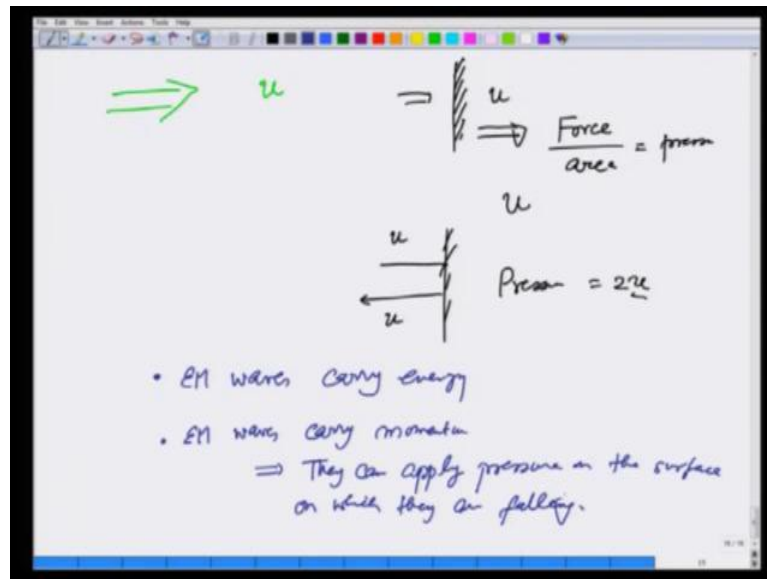 File Edit View Insert Actions Tools Help
u
u
Force
area
= pressu
u
u
Pressu = 2u
u
• EM waves carry energy
• EM waves carry momentum
⇒ They can apply pressure on the surface
on which they are falling.